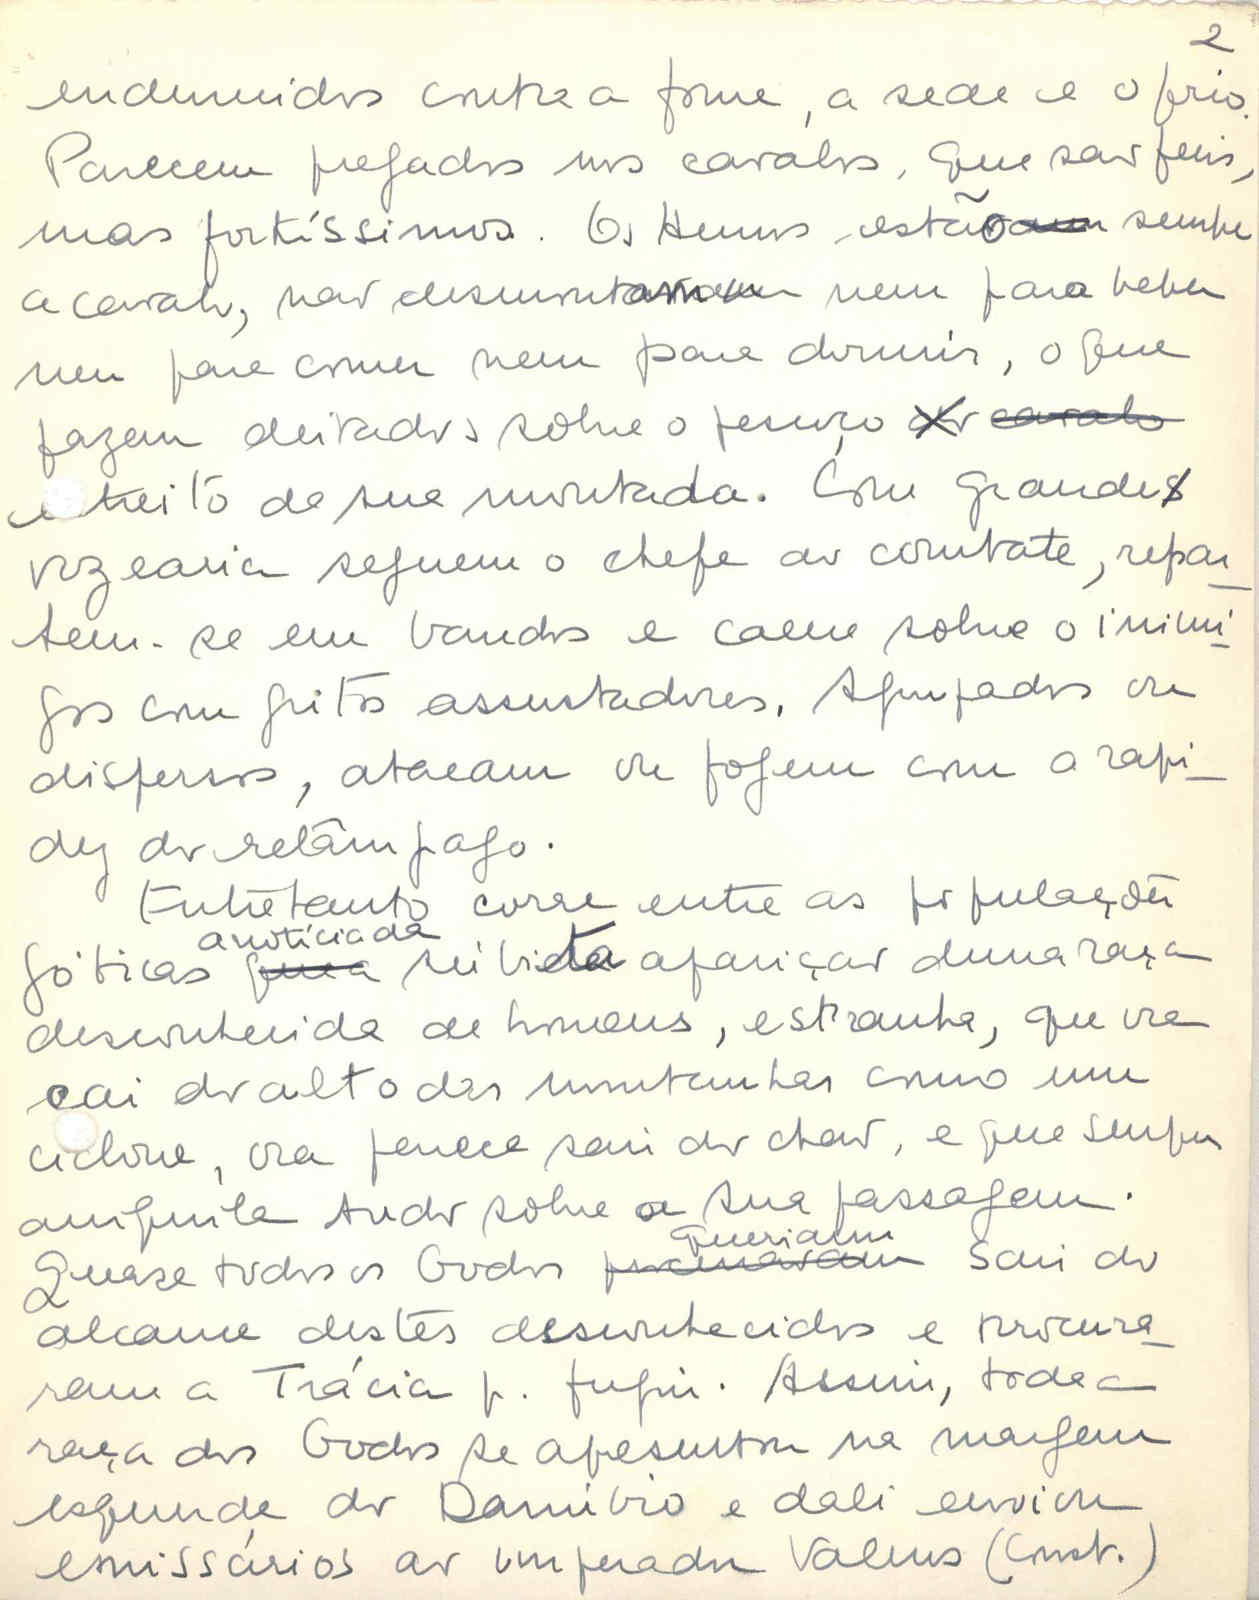 2
endurecidos contra a fome, a sede e o frio.
Parecem pregados nos cavalos, que são feios,
mas fortíssimos. Os Hunos estão sempre
a cavalo, não desmontam nem para beber
nem para comer nem para dormir, o que
fazem deitados sôbre o pescoço do cavalo
estreito de sua montada. Com grande
vozearia seguem o chefe ao combate, repar_
tem-se em bandos e caem sôbre o inimi_
gos com gritos assustadores. Agrupados ou
dispersos, atacam ou fogem com a rapi_
dez do relâmpago.
Entretanto corre entre as populações
a notícia da
góticas súbita aparição duma raça
desconhecida de homens, estranha, que ora
cai do alto das montanhas como um
ciclone, ora parece sair do chão, e que sempre
aniquila tudo sôbre a sua passagem.
queriam
Quase todos os Godos procuravam sair do
alcance dêstes desconhecidos e procura_
ram a Trácia p. fugir. Assim, toda a
raça dos Godos se apresentou na margem
esquerda do Danúbio e dali enviou
emissários ao imperador Valens (Const.)